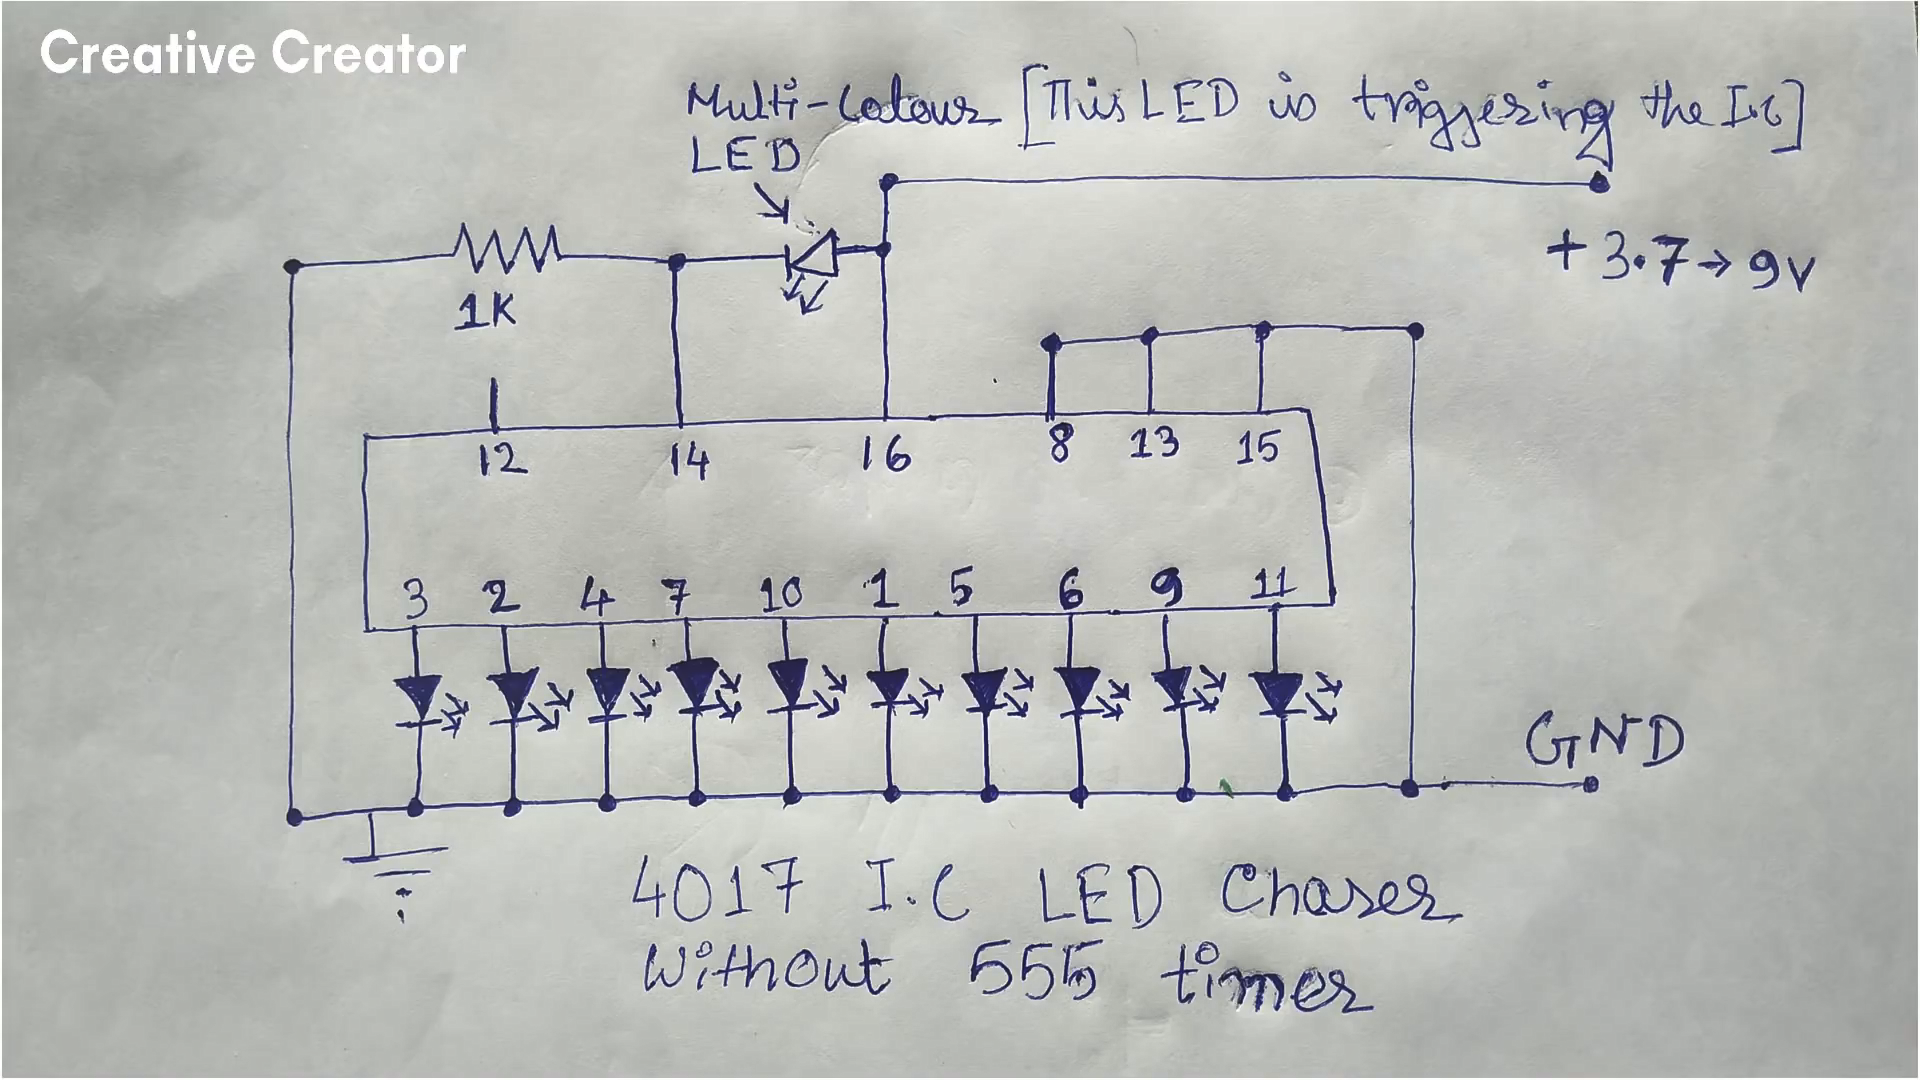 Creative Creator
Multi-Colour [This LED is triggering the I.C]
LED
+ 3.7→ 9V
1K
12 14 16 8 13 15
3 2 4 7 10 1 5 6 9 11
GND
4017 I.C LED Chaser
Without 555 timer